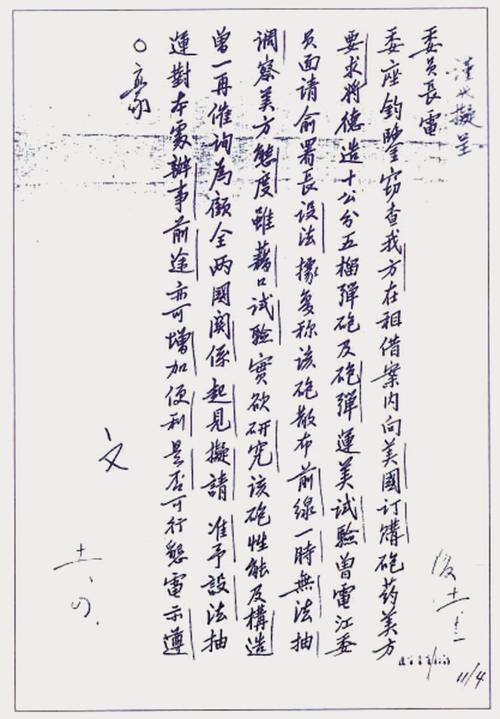 擬呈
委員長電
委座鈞鑒竊查我方在租借案內向美國訂購砲葯美方
要求將德造十公分五榴彈砲及砲彈運美試驗曾電江委
員面請俞署長設法據复称該砲散布前線一時無法抽
調察美方態度雖藉口試驗實欲研究該砲性能及構造
曾一再催詢為顧全两國関係起見擬請准予設法抽
運對本處辦事前途亦可增加便利是否可行懇電示遵
○豪
文
11/4